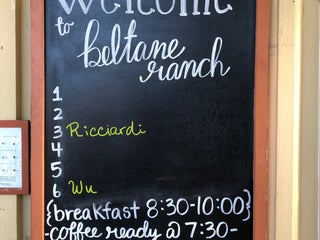 Welcome
to
beltane
ranch
1
2
3 Ricciardi
4
5
6 Wu
{breakfast 8:30-10:00}
-coffee ready @ 7:30-